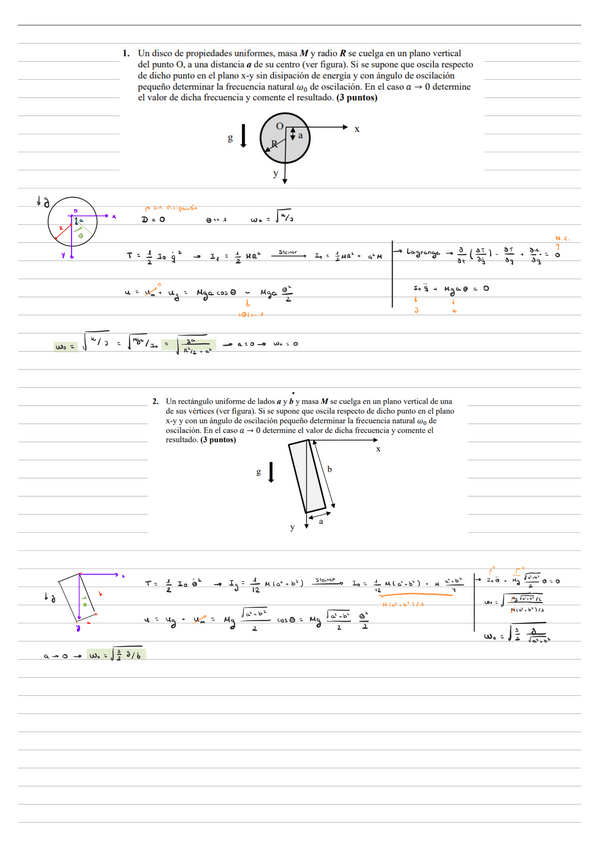 1. Un disco de propiedades uniformes, masa M y radio R se cuelga en un plano vertical
del punto O, a una distancia a de su centro (ver figura). Si se supone que oscila respecto
de dicho punto en el plano x-y sin disipación de energía y con ángulo de oscilación
pequeño determinar la frecuencia natural ω₀ de oscilación. En el caso a → 0 determine
el valor de dicha frecuencia y comente el resultado. (3 puntos)
O
x
g
a
R
y
↓g
o
x
a
R
θ
y
sin disipación
D = 0 θ<<1 ω₀ = √k/J
T = 1/2 I₀ q̇² → I_g = 1/2 MR² Steiner → I₀ = 1/2 MR² + a²M
→ Lagrange →
= 0
N.C.
I₀ q̈ + Mgaθ = 0
J
k
u = u_m + u_g = Mga cosθ ~ Mga θ²/2
ω₀ = √k/J = √Mga/I₀ = √ga/(R²/2 + a²) → a=0 → ω₀ = 0
2. Un rectángulo uniforme de lados a y b y masa M se cuelga en un plano vertical de una
de sus vértices (ver figura). Si se supone que oscila respecto de dicho punto en el plano
x-y y con un ángulo de oscilación pequeño determinar la frecuencia natural ω₀ de
oscilación. En el caso a → 0 determine el valor de dicha frecuencia y comente el
resultado. (3 puntos)
x
g
b
a
y
↓g
x
θ
b
a
y
T = 1/2 I₀ θ̇² → I_g = 1/12 M(a²+b²) Steiner → I₀ = 1/12 M(a²+b²) + M (a²+b²)/4
M(a²+b²)/3
→ I₀ θ̈ + Mg √(a²+b²)/2 θ = 0
u = u_g + u_m = Mg √(a²+b²)/2 cosθ = Mg √(a²+b²)/2 θ²/2
ω₀ = √(Mg √(a²+b²)/2)/(M(a²+b²)/3)
ω₀ = √(3/2 g/√(a²+b²))
a → 0 → ω₀ = √(3/2 g/b)